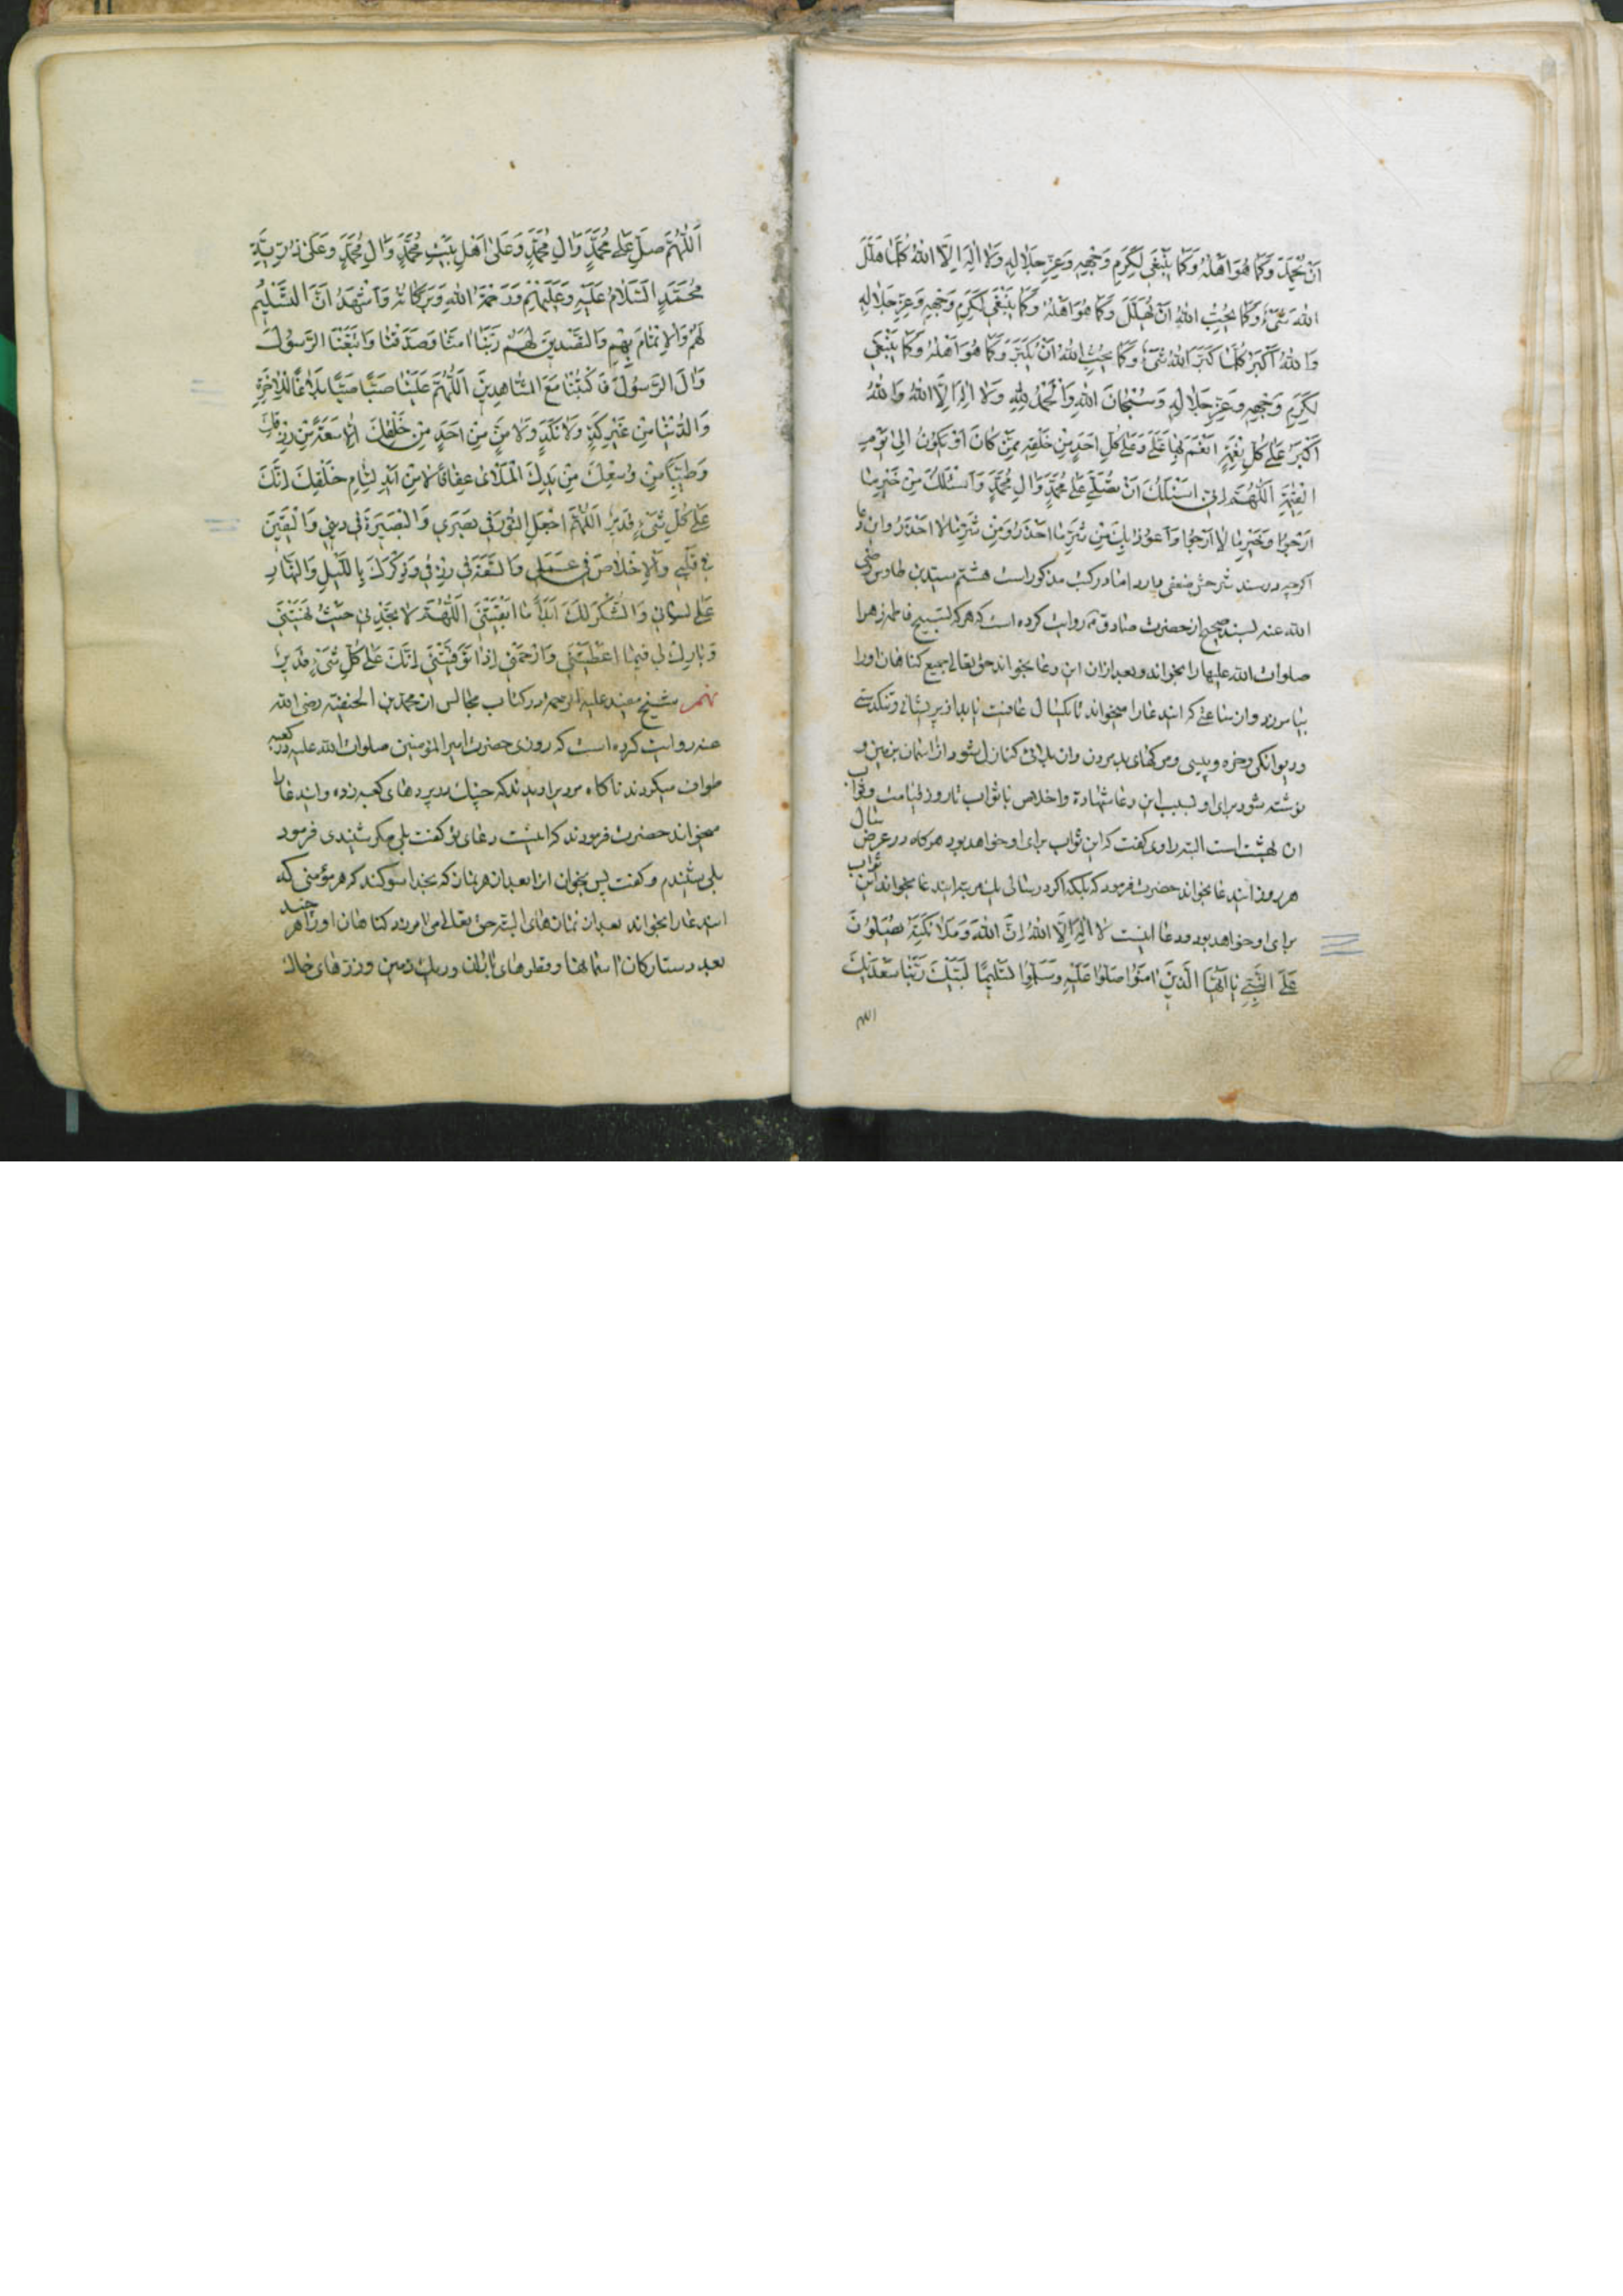 اَنْ یُحْمَدَ وَکَمٰا هُوَ اَهْلُهُ وَکَمٰا یَنْبَغی لِکَرَمِ وَجْهِهِ وَعِزِّ جَلٰالِهِ وَلٰا اِلٰهَ اِلَّا اللهُ کُلَّمٰا هَلَّلَ
اللهَ شَیْءٌ وَکَمٰا یُحِبُّ اللهُ اَنْ یُهَلَّلَ وَکَمٰا هُوَ اَهْلُهُ وَکَمٰا یَنْبَغی لِکَرَمِ وَجْهِهِ وَعِزِّ جَلٰالِهِ
وَاللهُ اَکْبَرُ کُلَّمٰا کَبَّرَ اللهَ شَیْءٌ وَکَمٰا یُحِبُّ اللهُ اَنْ یُکَبَّرَ وَکَمٰا هُوَ اَهْلُهُ وَکَمٰا یَنْبَغی
لِکَرَمِ وَجْهِهِ وَعِزِّ جَلٰالِهِ وَسُبْحٰانَ اللهِ وَالْحَمْدُ لِلّٰهِ وَلٰا اِلٰهَ اِلَّا اللهُ وَاللهُ
اَکْبَرُ عَلٰی کُلِّ نِعْمَةٍ اَنْعَمَ بِهٰا عَلَیَّ وَعَلٰی کُلِّ اَحَدٍ مِنْ خَلْقِهِ مِمَّنْ کٰانَ اَوْ یَکُوْنُ اِلٰی یَوْمِ
الْقِیٰمَةِ اَللّٰهُمَّ اِنّی اَسْئَلُکَ اَنْ تُصَلِّیَ عَلٰی مُحَمَّدٍ وَاٰلِ مُحَمَّدٍ وَاَسْئَلُکَ مِنْ خَیْرِ مٰا
اَرْجُوْا وَخَیْرِ مٰا لٰا اَرْجُوْا وَاَعُوْذُ بِکَ مِنْ شَرِّ مٰا اَحْذَرُ وَمِنْ شَرِّ مٰا لٰا اَحْذَرُ واین دعا
اکرچه در سند شرحش ضعفی دارد اما در کتب مذکور است هشتم سید بن طاوس رضی
الله عنه بسند صحیح از حضرت صادق ع روایت کرده است که هر که تسبیح فاطمه زهرا
صلوات الله علیها را بخواند و بعد از ان این دعا بخواند حق تعالی جمیع کناهان او را
بیامرزد و ان ساعتی که ایندعا را میخواند تا یکسال عافیت یابد از پریشانی و تنکدستی
و دیوانکی و خوره و پیسی و مرکهای بد مردن و ان بلائی که نازل شود از اسمان بزمین و
نوشته شود برای او بسبب این دعا شهادة و اخلاص با ثواب تا روز قیامت و ثواب
ان بهشت است البته راوی کفت که این ثواب برای او خواهد بود هرکاه در عرض سال
هر روز ایندعا بخواند حضرت فرمود که بلکه اکر در سالی یک مرتبه ایندعا بخواند این ثواب
برای او خواهد بود و دعا اینست لٰا اِلٰهَ اِلَّا اللهُ اِنَّ اللهَ وَمَلٰائِکَتَهُ یُصَلُّوْنَ
عَلَی النَّبِیِّ یٰا اَیُّهَا الَّذینَ اٰمَنُوْا صَلُّوْا عَلَیْهِ وَسَلِّمُوْا تَسْلیمًا لَبَّیْکَ رَبَّنٰا سَعْدَیْکَ
اللهم
اَللّٰهُمَّ صَلِّ عَلٰی مُحَمَّدٍ وَاٰلِ مُحَمَّدٍ وَعَلٰی اَهْلِ بَیْتِ مُحَمَّدٍ وَاٰلِ مُحَمَّدٍ وَعَلٰی ذُرِّیَّةِ
مُحَمَّدٍ اَلسَّلٰامُ عَلَیْهِ وَعَلَیْهِمْ وَرَحْمَةُ اللهِ وَبَرَکٰاتُهُ وَاَشْهَدُ اَنَّ التَّسْلیمَ
لَهُمْ وَالْاِئتِمٰامَ بِهِمْ وَالتَّصْدیقَ لَهُمْ رَبَّنٰا اٰمَنّٰا وَصَدَّقْنٰا وَاتَّبَعْنَا الرَّسُوْلَ
وَاٰلَ الرَّسُوْلِ فَاکْتُبْنٰا مَعَ الشّٰاهِدینَ اَللّٰهُمَّ عَلَیْنٰا صَبًّا صَبًّا بَلٰاغًا لِلْاٰخِرَةِ
وَالدُّنْیٰا مِنْ غَیْرِ کَدٍّ وَلٰا نَکَدٍ وَلٰا مَنٍّ مِنْ اَحَدٍ مِنْ خَلْقِکَ اِلّٰا سَعَةً مِنْ رِزْقِکَ
وَطَیِّبًا مِنْ وُسْعِکَ مِنْ یَدِکَ الْمَلْاٰی عِفٰافًا لٰا مِنْ اَیْدی لِئٰامِ خَلْقِکَ اِنَّکَ
عَلٰی کُلِّ شَیْءٍ قَدیرٌ اَللّٰهُمَّ اجْعَلِ النُّوْرَ فی بَصَری وَالْبَصیرَةَ فی دینی وَالْیَقینَ
فی قَلْبی وَالْاِخْلٰاصَ فی عَمَلی وَالسَّعَةَ فی رِزْقی وَذِکْرَکَ بِاللَّیْلِ وَالنَّهٰارِ
عَلٰی لِسٰانی وَالشُّکْرَ لَکَ اَبَدًا مٰا اَبْقَیْتَنی اَللّٰهُمَّ لٰا تَجِدْنی حَیْثُ نَهَیْتَنی
وَبٰارِکْ لی فیمٰا اَعْطَیْتَنی وَارْحَمْنی اِذٰا تَوَفَّیْتَنی اِنَّکَ عَلٰی کُلِّ شَیْءٍ قَدیرٌ
نهم شیخ مفید علیه الرحمه در کتاب مجالس از محمد بن الحنفیه رضی الله
عنه روایت کرده است که روزی حضرت امیر المؤمنین صلوات الله علیه در کعبه
طواف میکردند ناکاه مردیرا دیدند که چنک در پردهای کعبه زده و ایندعا را
میخواند حضرت فرمودند که اینست دعای تو کفت بلی مکر شنیدی فرمود
بلی شنیدم و کفت پس بخوان انرا بعد از هر نماز که بخدا سوکند که هر مؤمنی که
ایندعا را بخواند بعد از نمازهای البته حق تعالی می امرزد کناهان او را هر چند
بعدد ستارکان اسمانها و قطرهای باران و ریک زمین و ذرهای خاک